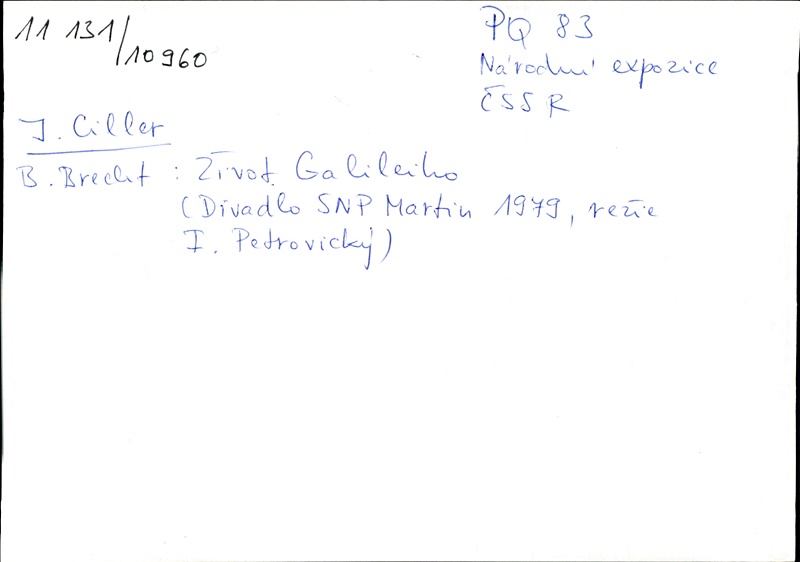 11 131/10960
PQ 83
Národní expozice
ČSSR
J. Ciller
B. Brecht : Život Galileiho
(Divadlo SNP Martin 1979, režie
I. Petrovický)